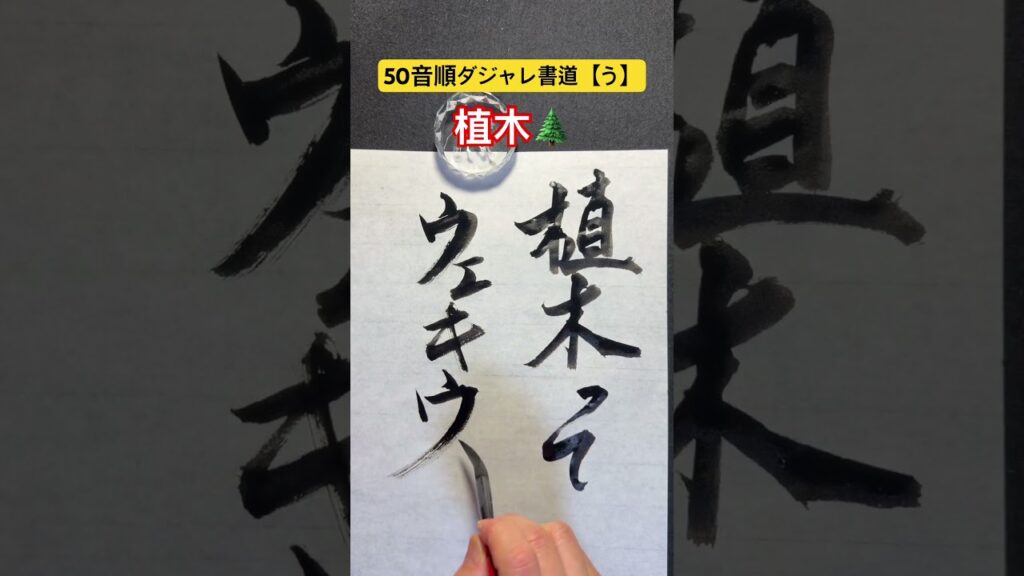 50音順ダジャレ書道【う】
植木🌲
植木そ
ウェキウ